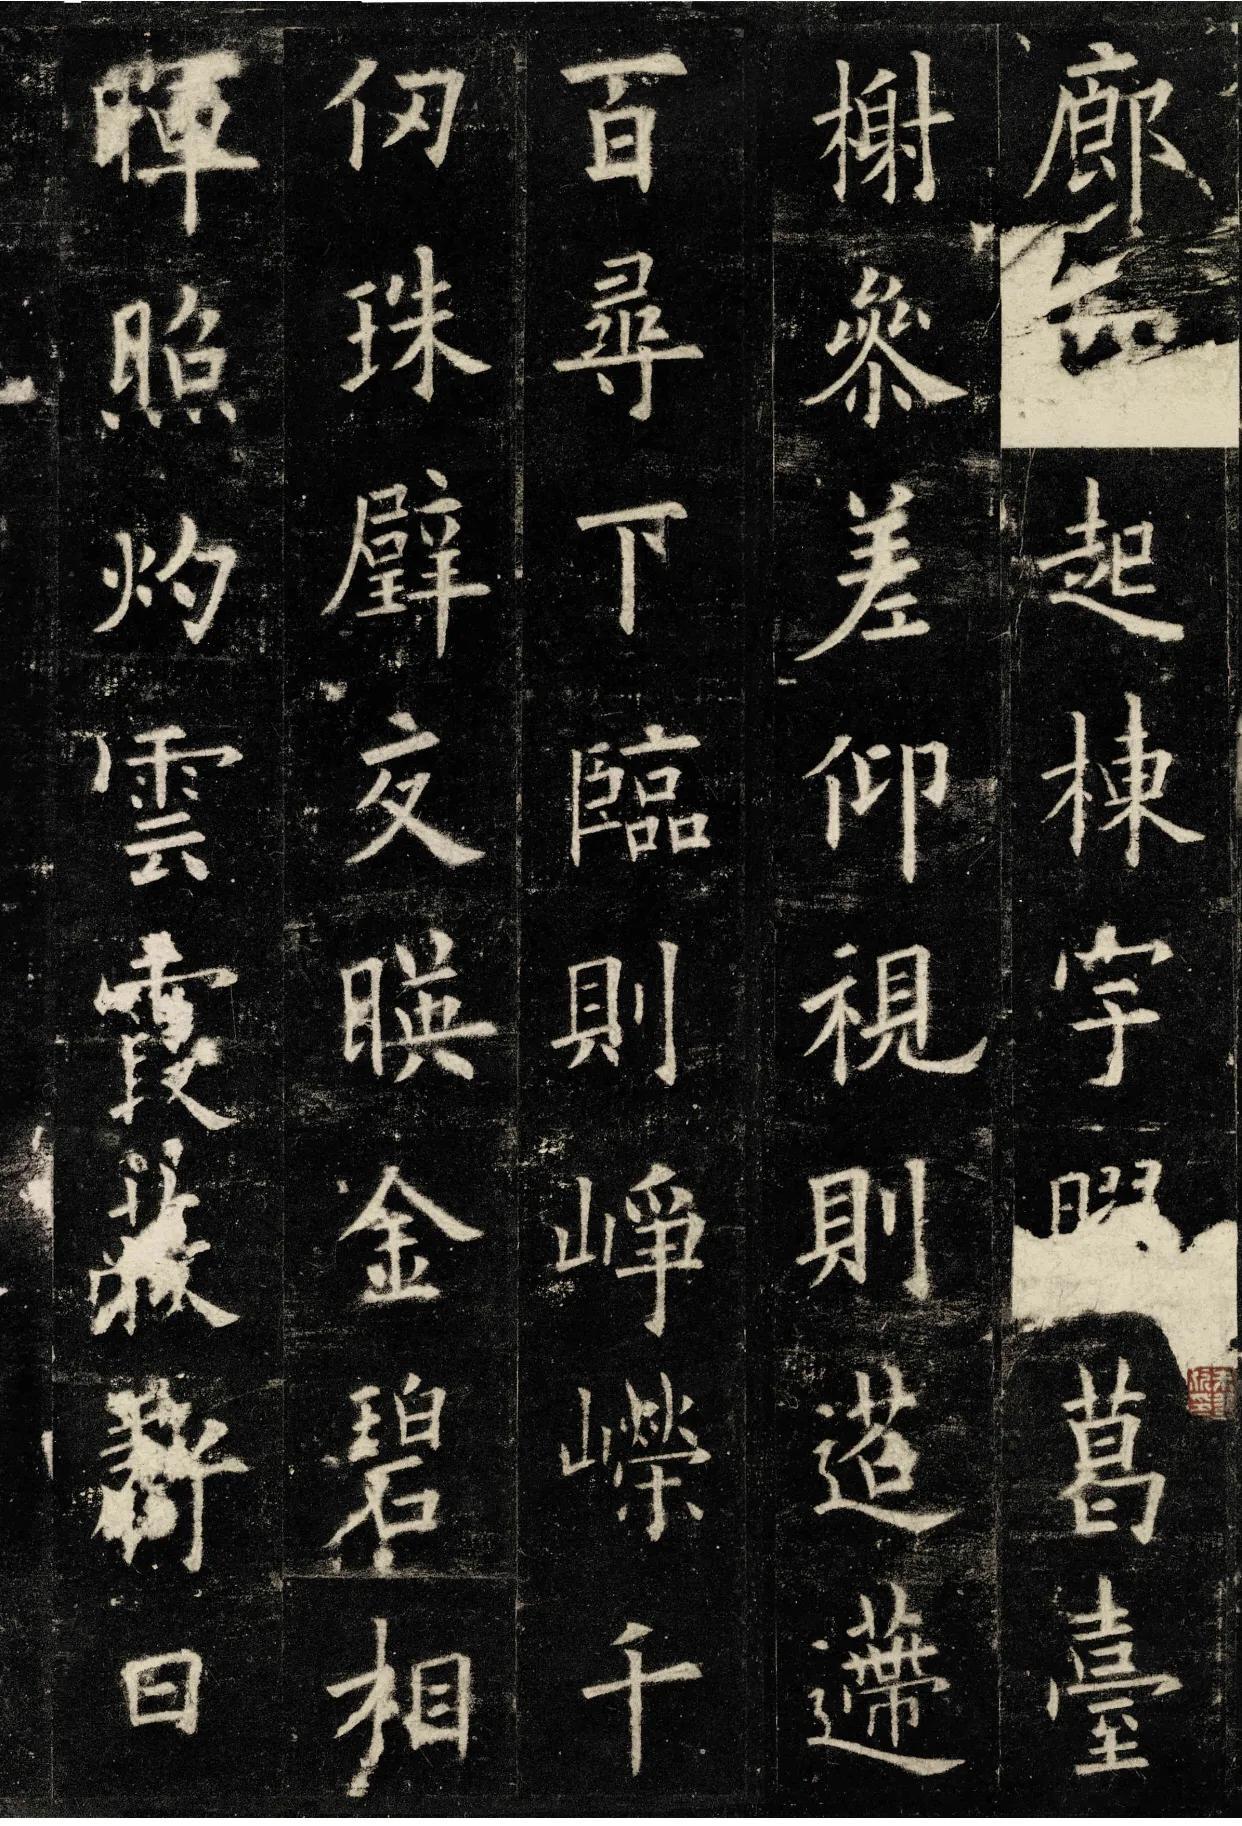 廊起棟宇膠葛臺
榭參差仰視則迢遰
百尋下臨則崢嶸千
仞珠璧交暎金碧相
暉照灼雲霞蔽虧日